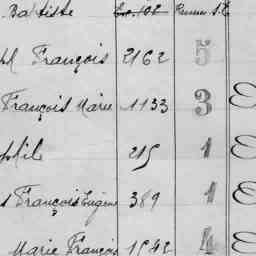 Baptiste
François 2162 5
François Marie 1133 3
phil 215 1
François Eugène 389 1
Marie François 1542 4